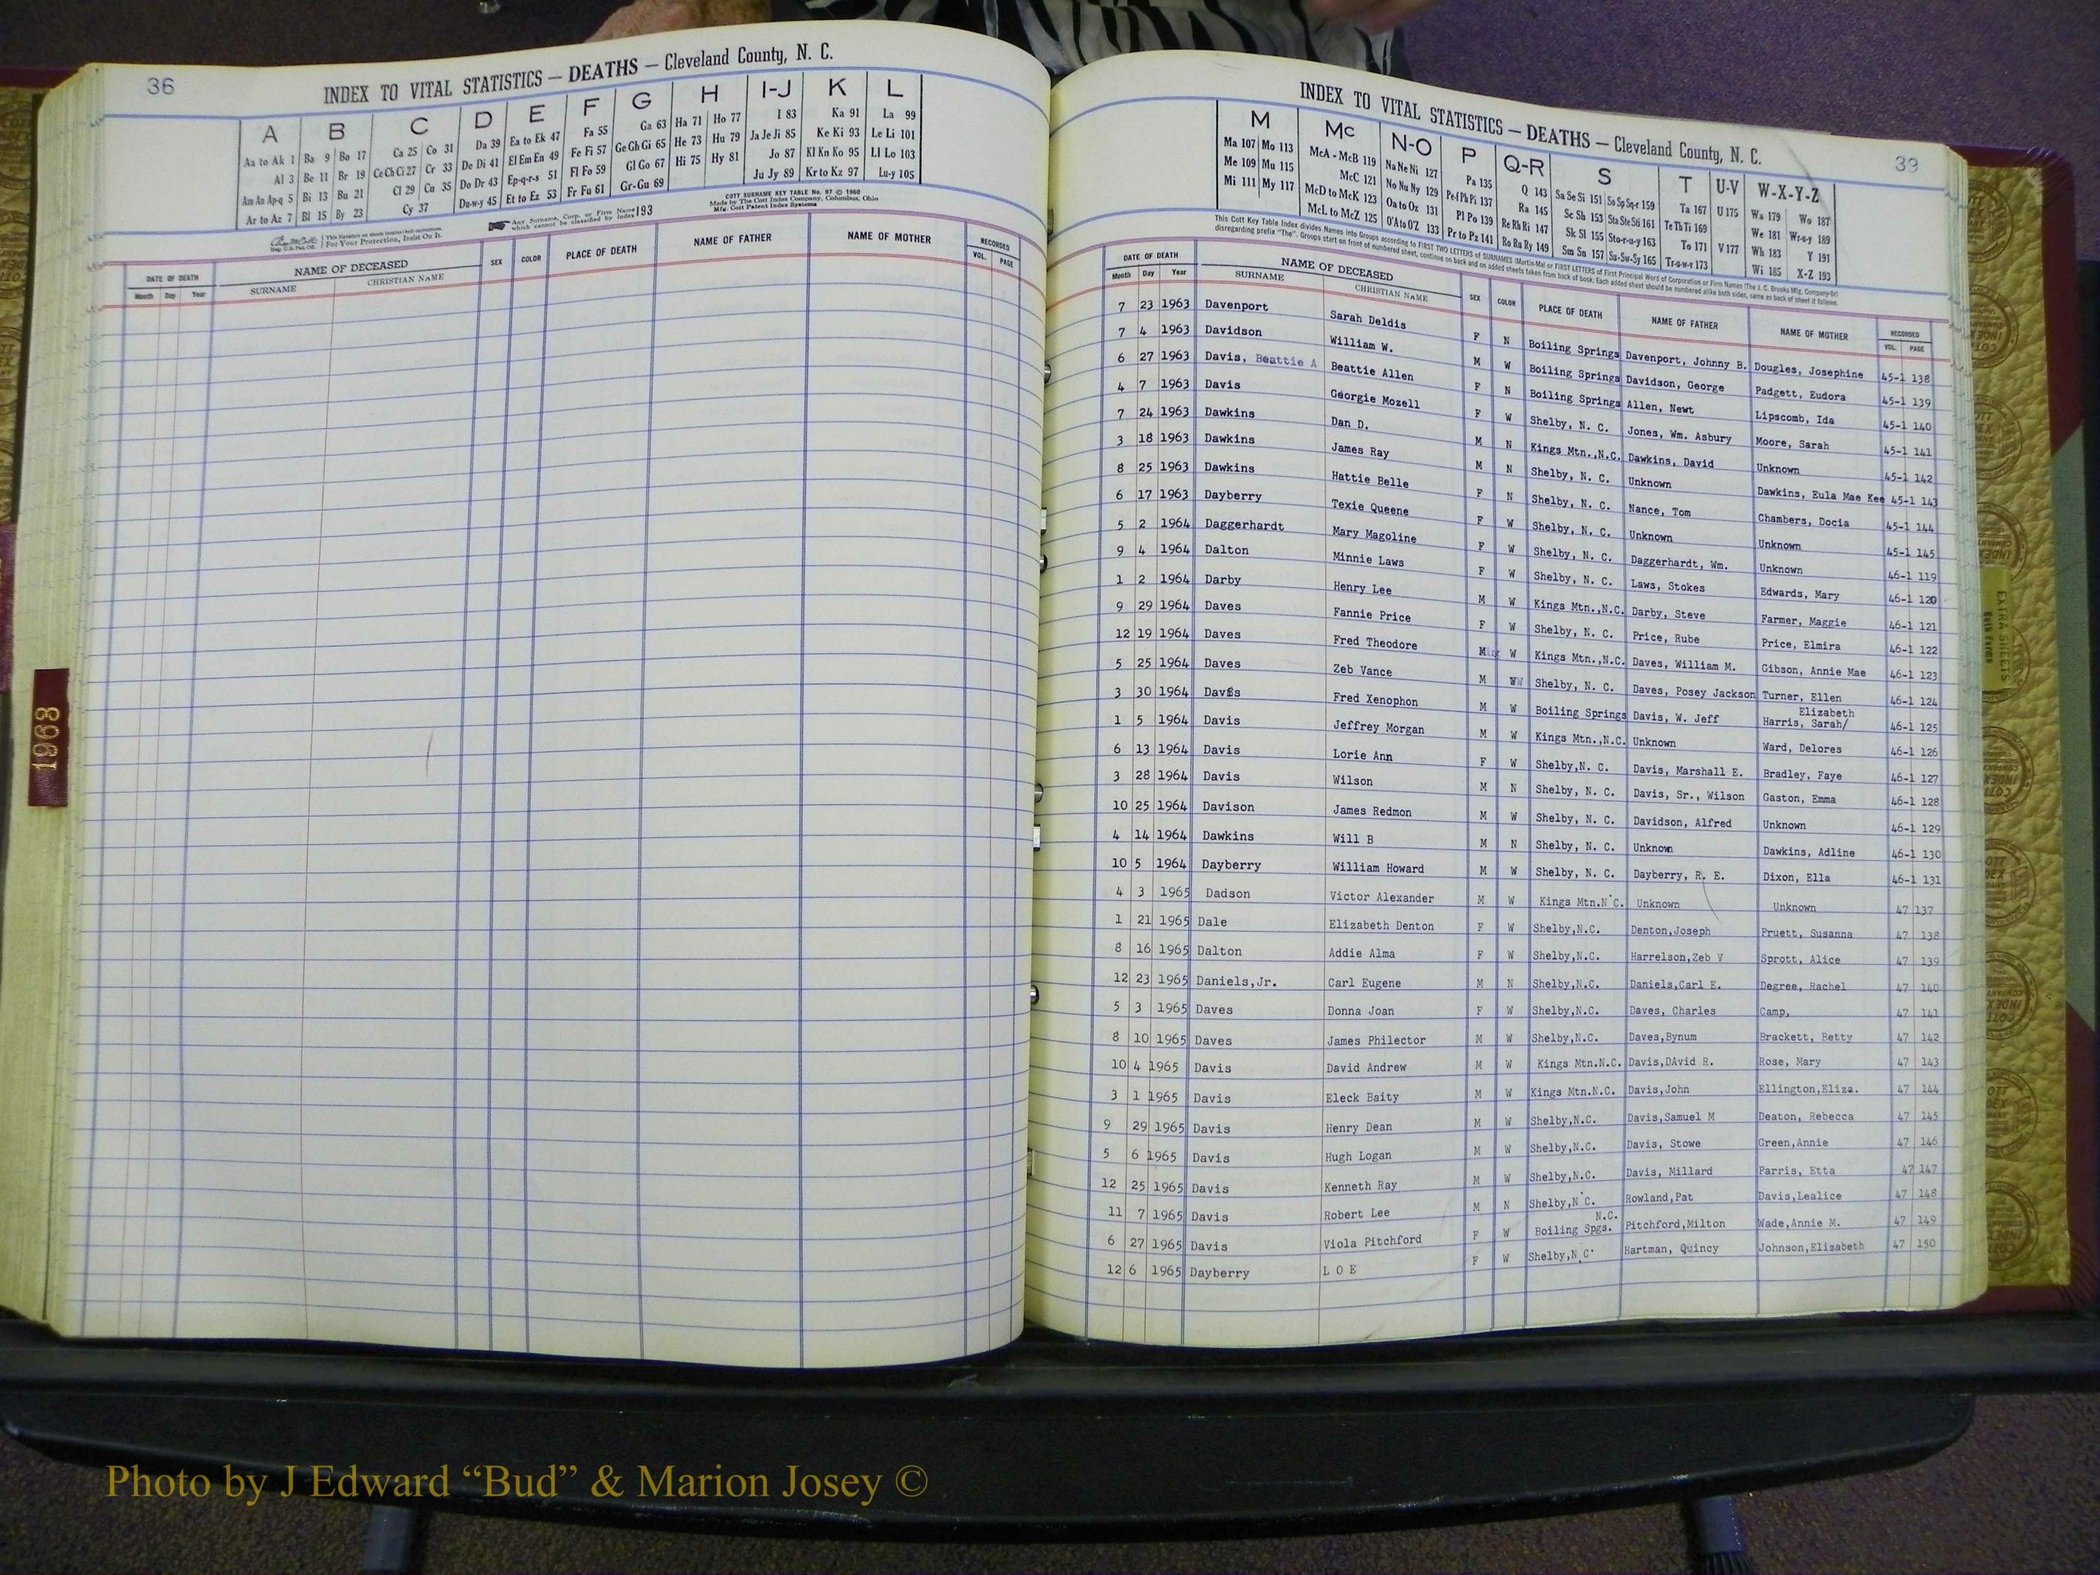 36
INDEX TO VITAL STATISTICS — DEATHS — Cleveland County, N. C.
A B C D E F G H I-J K L
Aa to Ak 1 Ba 9 Bo 17 Ca 25 Co 31 Da 39 Ea to Ek 47 Fa 55 Ga 63 Ha 71 Ho 77 I 83 Ka 91 La 99
Al 3 Be 11 Br 19 Ce Ch Ci 27 Cr 33 De Di 41 El Em En 49 Fe Fi 57 Ge Gh Gi 65 He 73 Hu 79 Ja Je Ji 85 Ke Ki 93 Le Li 101
Am An Ap-q 5 Bi 13 Bu 21 Cl 29 Cu 35 Do Dr 43 Ep-q-r-s 51 Fl Fo 59 Gl Go 67 Hi 75 Hy 81 Jo 87 Kl Kn Ko 95 Ll Lo 103
Ar to Az 7 Bl 15 By 23 Cy 37 Du-w-y 45 Et to Ez 53 Fr Fu 61 Gr-Gu 69 Ju Jy 89 Kr to Kz 97 Lu-y 105
Any Surname, Corp. or Firm Name which cannot be classified by Index 193
COTT SURNAME KEY TABLE No. 97 © 1960
Made by The Cott Index Company, Columbus, Ohio
Mfg. Cott Patent Index Systems
For Your Protection, Insist On It.
DATE OF DEATH NAME OF DECEASED SEX COLOR PLACE OF DEATH NAME OF FATHER NAME OF MOTHER RECORDED
Month Day Year SURNAME CHRISTIAN NAME VOL. PAGE
1968
INDEX TO VITAL STATISTICS — DEATHS — Cleveland County, N. C.
39
M Mc N-O P Q-R S T U-V W-X-Y-Z
Ma 107 Mo 113 McA - McB 119 Na Ne Ni 127 Pa 135 Q 143 Sa Se Si 151 So Sp Sq-r 159 Ta 167 U 175 Wa 179 Wo 187
Me 109 Mu 115 McC 121 No Nu Ny 129 Pe Pf Ph Pi 137 Ra 145 Sc Sh 153 Sta Ste Sti 161 Te Th Ti 169 We 181 Wr-u-y 189
Mi 111 My 117 McD to McK 123 Oa to Oz 131 Pl Po 139 Re Rh Ri 147 Sk Sl 155 Sto-r-u-y 163 To 171 V 177 Wh 183 Y 191
McL to McZ 125 O'A to O'Z 133 Pr to Pz 141 Ro Ru Ry 149 Sm Sn 157 Su-Sw-Sy 165 Tr-u-w-y 173 Wi 185 X-Z 193
This Cott Key Table Index divides Names into Groups according to FIRST TWO LETTERS of SURNAMES (Martin-Ma) or FIRST LETTERS of First Principal Word of Corporation or Firm Names (The J. C. Brooks Mfg. Company-Br)
disregarding prefix "The". Groups start on front of numbered sheet, continue on back and on added sheets taken from back of book. Each added sheet should be numbered alike both sides, same as back of sheet it follows.
DATE OF DEATH NAME OF DECEASED SEX COLOR PLACE OF DEATH NAME OF FATHER NAME OF MOTHER RECORDED
Month Day Year SURNAME CHRISTIAN NAME VOL. PAGE
7 23 1963 Davenport Sarah Deldis F N Boiling Springs Davenport, Johnny B. Dougles, Josephine 45-1 138
7 4 1963 Davidson William W. M W Boiling Springs Davidson, George Padgett, Eudora 45-1 139
6 27 1963 Davis, Beattie A Beattie Allen F N Boiling Springs Allen, Newt Lipscomb, Ida 45-1 140
4 7 1963 Davis Georgie Mozell F W Shelby, N. C. Jones, Wm. Asbury Moore, Sarah 45-1 141
7 24 1963 Dawkins Dan D. M N Kings Mtn.,N.C. Dawkins, David Unknown 45-1 142
3 18 1963 Dawkins James Ray M N Shelby, N. C. Unknown Dawkins, Eula Mae Kee 45-1 143
8 25 1963 Dawkins Hattie Belle F N Shelby, N. C. Nance, Tom Chambers, Docia 45-1 144
6 17 1963 Dayberry Texie Queene F W Shelby, N. C. Unknown Unknown 45-1 145
5 2 1964 Daggerhardt Mary Magoline F W Shelby, N. C. Daggerhardt, Wm. Unknown 46-1 119
9 4 1964 Dalton Minnie Laws F W Shelby, N. C. Laws, Stokes Edwards, Mary 46-1 120
1 2 1964 Darby Henry Lee M W Kings Mtn.,N.C. Darby, Steve Farmer, Maggie 46-1 121
9 29 1964 Daves Fannie Price F W Shelby, N. C. Price, Rube Price, Elmira 46-1 122
12 19 1964 Daves Fred Theodore M W Kings Mtn.,N.C. Daves, William M. Gibson, Annie Mae 46-1 123
5 25 1964 Daves Zeb Vance M W Shelby, N. C. Daves, Posey Jackson Turner, Ellen 46-1 124
3 30 1964 Davis Fred Xenophon M W Boiling Springs Davis, W. Jeff Harris, Sarah/ Elizabeth 46-1 125
1 5 1964 Davis Jeffrey Morgan M W Kings Mtn.,N.C. Unknown Ward, Delores 46-1 126
6 13 1964 Davis Lorie Ann F W Shelby,N. C. Davis, Marshall E. Bradley, Faye 46-1 127
3 28 1964 Davis Wilson M N Shelby, N. C. Davis, Sr., Wilson Gaston, Emma 46-1 128
10 25 1964 Davison James Redmon M W Shelby, N. C. Davidson, Alfred Unknown 46-1 129
4 14 1964 Dawkins Will B M N Shelby, N. C. Unknown Dawkins, Adline 46-1 130
10 5 1964 Dayberry William Howard M W Shelby, N. C. Dayberry, R. E. Dixon, Ella 46-1 131
4 3 1965 Dadson Victor Alexander M W Kings Mtn.N.C. Unknown Unknown 47 137
1 21 1965 Dale Elizabeth Denton F W Shelby,N.C. Denton,Joseph Pruett, Susanna 47 138
8 16 1965 Dalton Addie Alma F W Shelby,N.C. Harrelson,Zeb V Sprott, Alice 47 139
12 23 1965 Daniels,Jr. Carl Eugene M N Shelby,N.C. Daniels,Carl E. Degree, Rachel 47 140
5 3 1965 Daves Donna Joan F W Shelby,N.C. Daves, Charles Camp, 47 141
8 10 1965 Daves James Philector M W Shelby,N.C. Daves,Bynum Brackett, Betty 47 142
10 4 1965 Davis David Andrew M W Kings Mtn.N.C. Davis,DAvid R. Rose, Mary 47 143
3 1 1965 Davis Eleck Baity M W Kings Mtn.N.C. Davis,John Ellington,Eliza. 47 144
9 29 1965 Davis Henry Dean M W Shelby,N.C. Davis,Samuel M Deaton, Rebecca 47 145
5 6 1965 Davis Hugh Logan M W Shelby,N.C. Davis, Stowe Green,Annie 47 146
12 25 1965 Davis Kenneth Ray M W Shelby,N.C. Davis, Millard Parris, Etta 47 147
11 7 1965 Davis Robert Lee M N Shelby,N.C. Rowland,Pat Davis,Lealice 47 148
6 27 1965 Davis Viola Pitchford F W Boiling Spgs. N.C. Pitchford,Milton Wade,Annie M. 47 149
12 6 1965 Dayberry L O E F W Shelby,N.C. Hartman, Quincy Johnson,Elizabeth 47 150
EXTRA SHEETS
Photo by J Edward “Bud” & Marion Josey ©